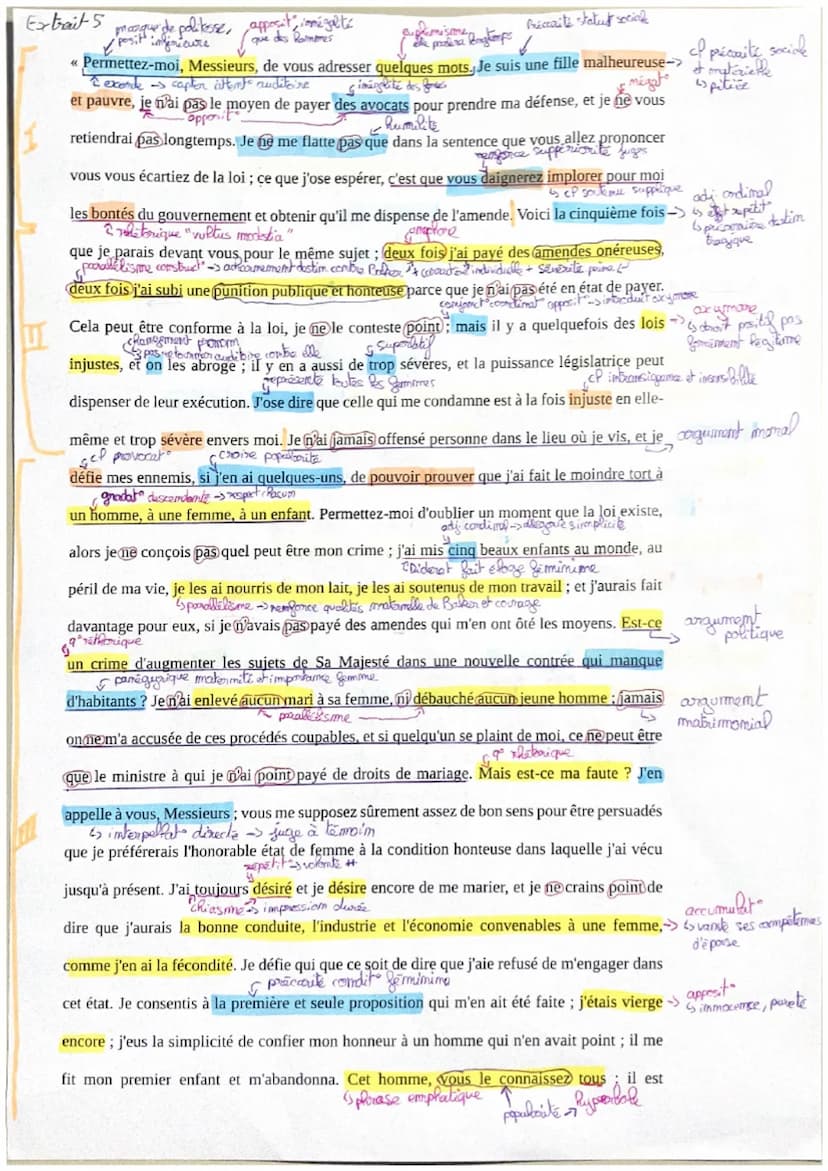 Extrait 5
marque de politesse,
posit° inférieure
apposit°, inégalité
que des hommes
euphémisme
elle parlera longtemps
Précarité statut sociale
« Permettez-moi, Messieurs, de vous adresser quelques mots. Je suis une fille malheureuse
cf précarité sociale
et matérielle
↳ pitiée
exorde → capter attent° auditoire
inégalité des sexes
négat°
et pauvre, je n'ai pas le moyen de payer des avocats pour prendre ma défense, et je ne vous
apposit°
humilité
retiendrai pas longtemps. Je ne me flatte pas que dans la sentence que vous allez prononcer
renforce suppériorité juges
vous vous écartiez de la loi ; ce que j'ose espérer, c'est que vous daignerez implorer pour moi
↳ cf soutenu supplique
I
les bontés du gouvernement et obtenir qu'il me dispense de l'amende. Voici la cinquième fois
adj cardinal
↳ effet répétit°
↳ prisonnière destin
tragique
rhétorique "vultus modestia"
anaphore
que je parais devant vous pour le même sujet ; deux fois j'ai payé des amendes onéreuses,
parallélisme construct° → acharnement destin contre Baker
deux fois j'ai subi une punition publique et honteuse parce que je n'ai pas été en état de payer.
conjonct° coordinat° opposit° → introduit oxymore
II
Cela peut être conforme à la loi, je ne le conteste point ; mais il y a quelquefois des lois
oxymore
↳ droit positif pas
forcément légitime
changement pronom
↳ pas retourner auditoire contre elle
superlatif
injustes, et on les abroge ; il y en a aussi de trop sévères, et la puissance législatrice peut
représente toutes les femmes
cf intransigeance et insensibilité
dispenser de leur exécution. J'ose dire que celle qui me condamne est à la fois injuste en elle-
même et trop sévère envers moi. Je n'ai jamais offensé personne dans le lieu où je vis, et je
argument moral
cf provocat°
croire popularité
défie mes ennemis, si j'en ai quelques-uns, de pouvoir prouver que j'ai fait le moindre tort à
gradat° descendante → respect chacun
un homme, à une femme, à un enfant. Permettez-moi d'oublier un moment que la loi existe,
alors je ne conçois pas quel peut être mon crime ; j'ai mis cinq beaux enfants au monde, au
Diderot fait éloge féminisme
péril de ma vie, je les ai nourris de mon lait, je les ai soutenus de mon travail ; et j'aurais fait
↳ parallélisme → renforce qualités maternelle de Baker et courage
davantage pour eux, si je n'avais pas payé des amendes qui m'en ont ôté les moyens. Est-ce
argument
politique
q° rhétorique
un crime d'augmenter les sujets de Sa Majesté dans une nouvelle contrée qui manque
panégyrique maternité et importance femme
d'habitants ? Je n'ai enlevé aucun mari à sa femme, ni débauché aucun jeune homme ; jamais
argument
matrimonial
parallélisme
on ne m'a accusée de ces procédés coupables, et si quelqu'un se plaint de moi, ce ne peut être
q° rhétorique
que le ministre à qui je n'ai point payé de droits de mariage. Mais est-ce ma faute ? J'en
III
appelle à vous, Messieurs ; vous me supposez sûrement assez de bon sens pour être persuadés
↳ interpellat° directe → juge à témoin
que je préférerais l'honorable état de femme à la condition honteuse dans laquelle j'ai vécu
répétit° → volonté ++
jusqu'à présent. J'ai toujours désiré et je désire encore de me marier, et je ne crains point de
chiasme → impression durée
dire que j'aurais la bonne conduite, l'industrie et l'économie convenables à une femme,
accumulat°
↳ vante ses compétences
d'épouse
comme j'en ai la fécondité. Je défie qui que ce soit de dire que j'aie refusé de m'engager dans
précarité condit° féminine
cet état. Je consentis à la première et seule proposition qui m'en ait été faite ; j'étais vierge
apposit°
↳ innocence, pureté
encore ; j'eus la simplicité de confier mon honneur à un homme qui n'en avait point ; il me
fit mon premier enfant et m'abandonna. Cet homme, vous le connaissez tous : il est
↳ phrase emphatique
popularité → hyperbole